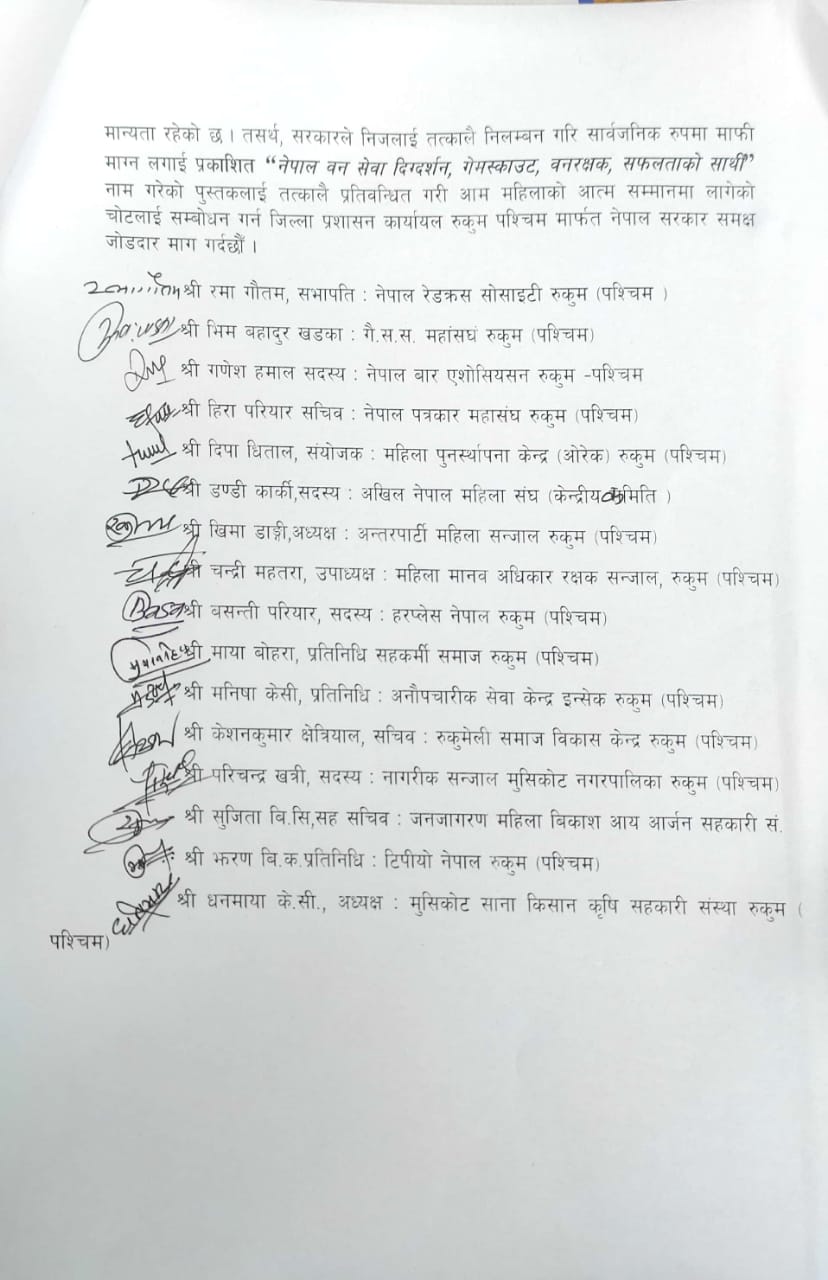 मान्यता रहेको छ । तसर्थ, सरकारले निजलाई तत्कालै निलम्बन गरि सार्वजनिक रुपमा माफी
माग्न लगाई प्रकाशित “नेपाल वन सेवा दिग्दर्शन, गेमस्काउट, वनरक्षक, सफलताको सार्थी”
नाम गरेको पुस्तकलाई तत्कालै प्रतिवन्धित गरी आम महिलाको आत्म सम्मानमा लागेको
चोटलाई सम्बोधन गर्न जिल्ला प्रशासन कार्यायल रुकुम पश्चिम मार्फत नेपाल सरकार समक्ष
जोडदार माग गर्दछौं ।
श्री रमा गौतम, सभापति : नेपाल रेडक्रस सोसाइटी रुकुम (पश्चिम )
श्री भिम बहादुर खडका : गै.स.स. महांसघं रुकुम (पश्चिम)
श्री गणेश हमाल सदस्य : नेपाल बार एशोसियसन रुकुम -पश्चिम
श्री हिरा परियार सचिव : नेपाल पत्रकार महासंघ रुकुम (पश्चिम)
श्री दिपा धिताल, संयोजक : महिला पुनर्स्थापना केन्द्र (ओरेक) रुकुम (पश्चिम)
श्री डण्डी कार्की,सदस्य : अखिल नेपाल महिला संघ (केन्द्रीय समिति )
श्री खिमा डाङ्गी,अध्यक्ष : अन्तरपार्टी महिला सन्जाल रुकुम (पश्चिम)
श्री चन्द्री महतरा, उपाध्यक्ष : महिला मानव अधिकार रक्षक सन्जाल, रुकुम (पश्चिम)
श्री वसन्ती परियार, सदस्य : हरप्लेस नेपाल रुकुम (पश्चिम)
श्री माया बोहरा, प्रतिनिधि सहकर्मी समाज रुकुम (पश्चिम)
श्री मनिषा केसी, प्रतिनिधि : अनौपचारीक सेवा केन्द्र इन्सेक रुकुम (पश्चिम)
श्री केशनकुमार क्षेत्रियाल, सचिव : रुकुमेली समाज विकास केन्द्र रुकुम (पश्चिम)
श्री परिचन्द्र खत्री, सदस्य : नागरीक सन्जाल मुसिकोट नगरपालिका रुकुम (पश्चिम)
श्री सुजिता वि.सि,सह सचिव : जनजागरण महिला बिकाश आय आर्जन सहकारी सं.
श्री झरण बि.क.प्रतिनिधि : टिपीयो नेपाल रुकुम (पश्चिम)
श्री धनमाया के.सी., अध्यक्ष : मुसिकोट साना किसान कृषि सहकारी संस्था रुकुम (
पश्चिम)